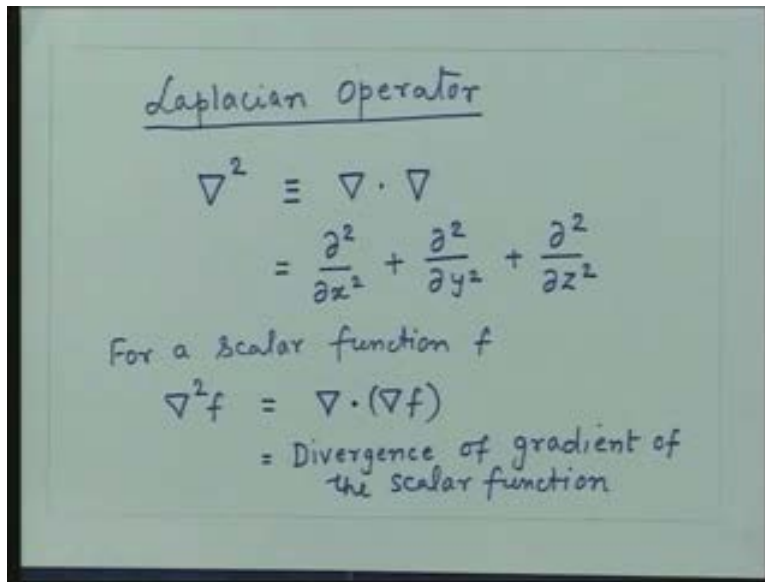 Laplacian Operator
∇² ≡ ∇ · ∇
= ∂²/∂x² + ∂²/∂y² + ∂²/∂z²
For a scalar function f
∇²f = ∇ · (∇f)
= Divergence of gradient of
the scalar function